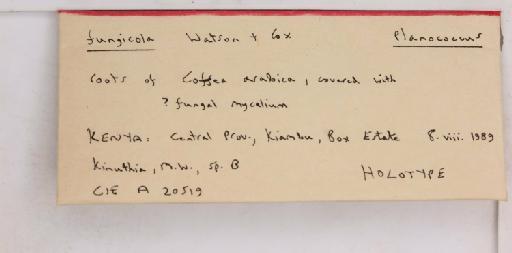 fungicola Watson + Cox Planococcus
roots of Coffea arabica, covered with
? fungal mycelium
KENYA: Central Prov., Kiambu, Box Estate 8.viii.1989
Kinuthia, M.W., sp. B
HOLOTYPE
CIE A 20519